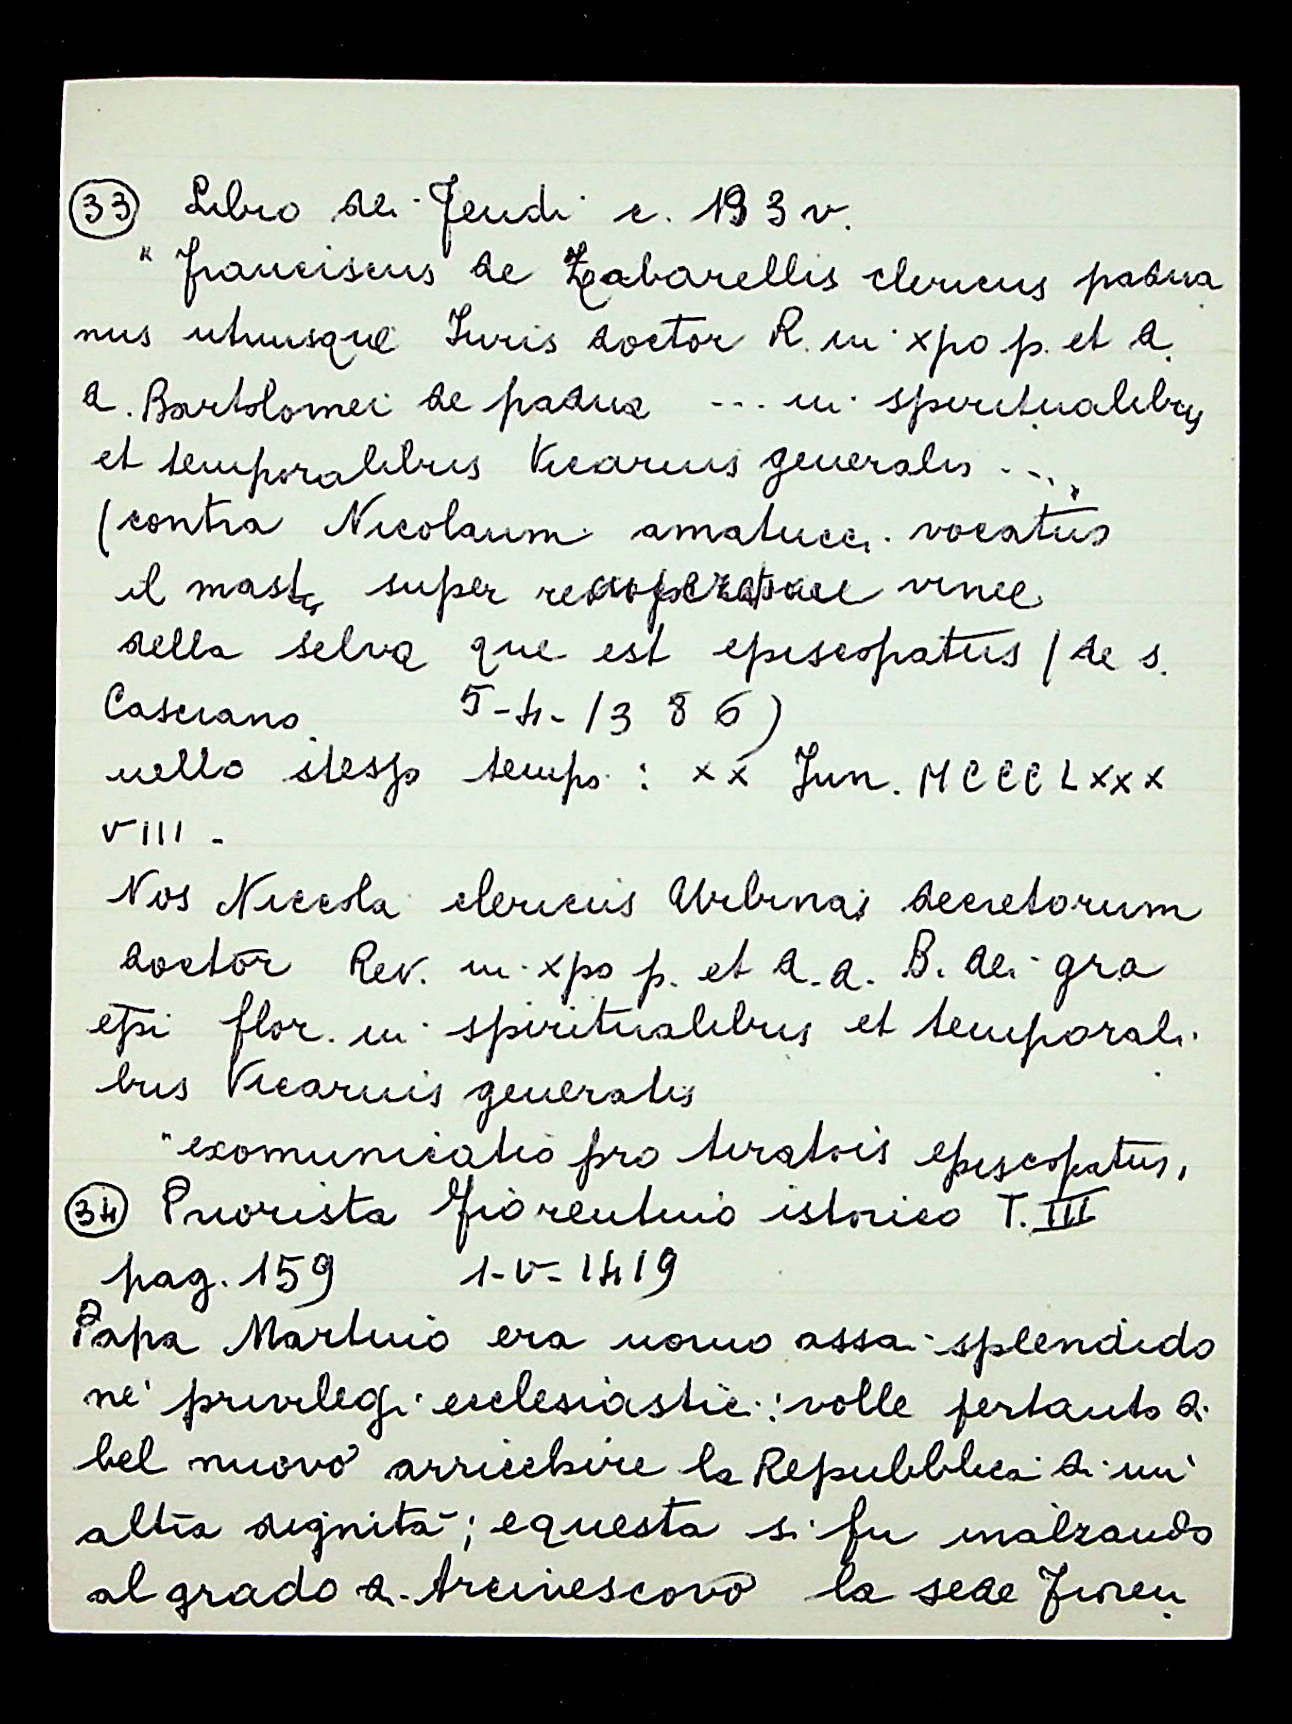 (33) Libro dei Feudi c. 193 v.
" Franciscus de Zabarellis clericus padua
nus utriusque Iuris doctor R. in xpo p. et d.
d. Bartolomei de padua --- in spiritualibus
et temporalibus Vicarius generalis ...
(contra Nicolaum amatucci vocatus
il super vinee
della selva que est episcopatus / de s.
Casciano 5-4-1386)
nello stesso tempo : xx Jun. MCCCLxxx
VIII -
Nos Niccola clericus Urbinas decretorum
doctor Rev. in xpo p. et d. d. B. dei gra
epi flor. in spiritualibus et temporali
bus Vicarius generalis
"exomunicatio pro episcopatus,
(34) Priorista Fiorentino istorico T. III
pag. 159 1-V-1419
Papa Martino era uomo assai splendido
ne' privilegi ecclesiastici: volle pertanto di
bel nuovo arricchire la Repubblica di un'
altra dignità; e questa si fu inalzando
al grado di Arcivescovo la sede Fioren